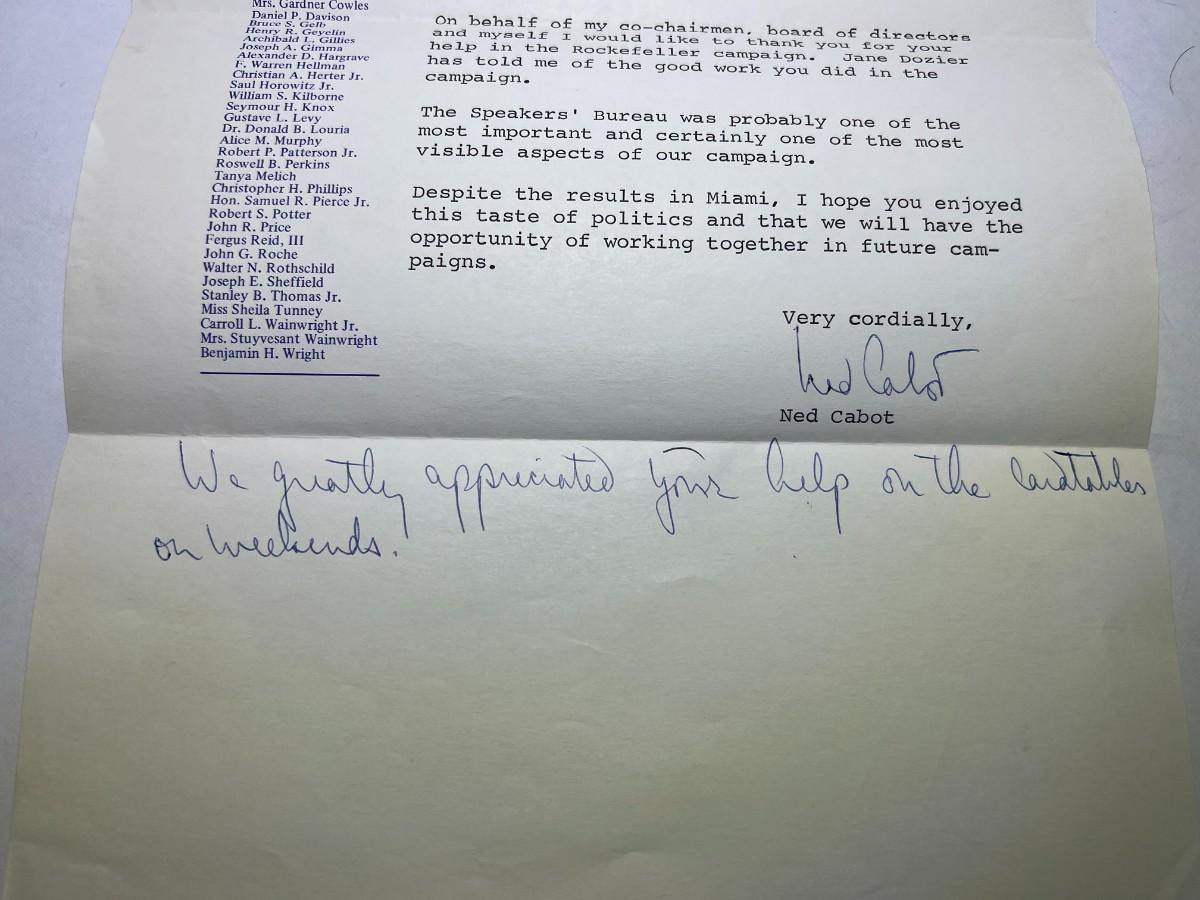 Mrs. Gardner Cowles
Daniel P. Davison
Bruce S. Gelb
Henry R. Geyelin
Archibald L. Gillies
Joseph A. Gimma
Alexander D. Hargrave
F. Warren Hellman
Christian A. Herter Jr.
Saul Horowitz Jr.
William S. Kilborne
Seymour H. Knox
Gustave L. Levy
Dr. Donald B. Louria
Alice M. Murphy
Robert P. Patterson Jr.
Roswell B. Perkins
Tanya Melich
Christopher H. Phillips
Hon. Samuel R. Pierce Jr.
Robert S. Potter
John R. Price
Fergus Reid, III
John G. Roche
Walter N. Rothschild
Joseph E. Sheffield
Stanley B. Thomas Jr.
Miss Sheila Tunney
Carroll L. Wainwright Jr.
Mrs. Stuyvesant Wainwright
Benjamin H. Wright
On behalf of my co-chairmen, board of directors
and myself I would like to thank you for your
help in the Rockefeller campaign. Jane Dozier
has told me of the good work you did in the
campaign.
The Speakers' Bureau was probably one of the
most important and certainly one of the most
visible aspects of our campaign.
Despite the results in Miami, I hope you enjoyed
this taste of politics and that we will have the
opportunity of working together in future cam-
paigns.
Very cordially,
Ned Cabot
Ned Cabot
We greatly appreciated your help on the cardtables
on weekends.